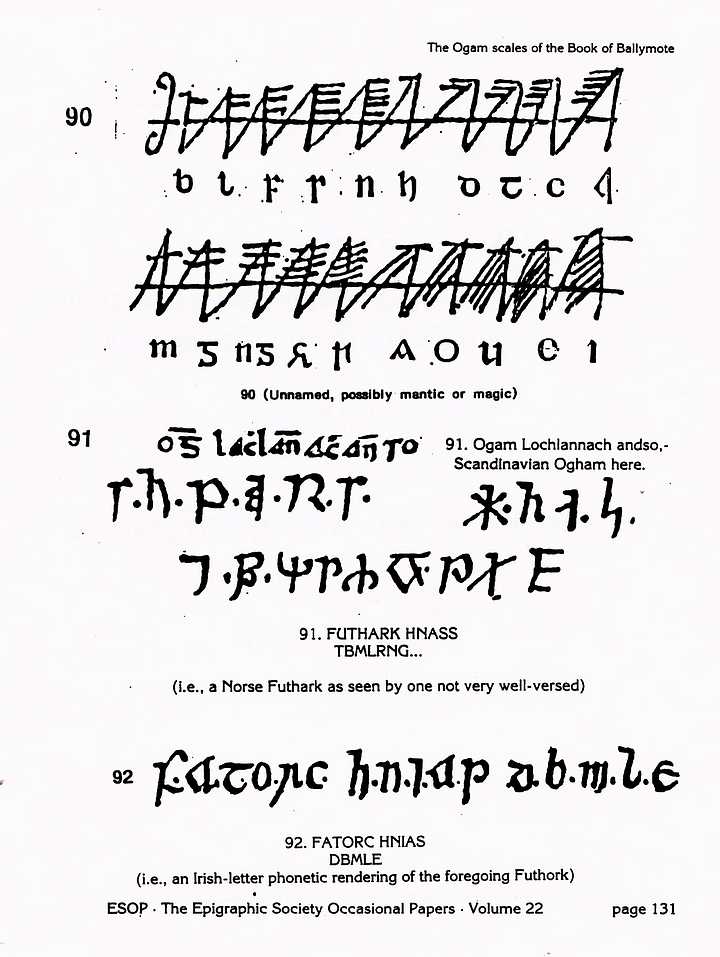 The Ogam scales of the Book of Ballymote
90
b l f s n h d t c q
m g ng z r a o u e i
90 (Unnamed, possibly mantic or magic)
91
91. Ogam Lochlannach andso,-
Scandinavian Ogham here.
91. FUTHARK HNASS
TBMLRNG...
(i.e., a Norse Futhark as seen by one not very well-versed)
92
f·a·t·o·r·c h·n·i·a·s d·b·m·l·e
92. FATORC HNIAS
DBMLE
(i.e., an Irish-letter phonetic rendering of the foregoing Futhork)
ESOP · The Epigraphic Society Occasional Papers · Volume 22 page 131